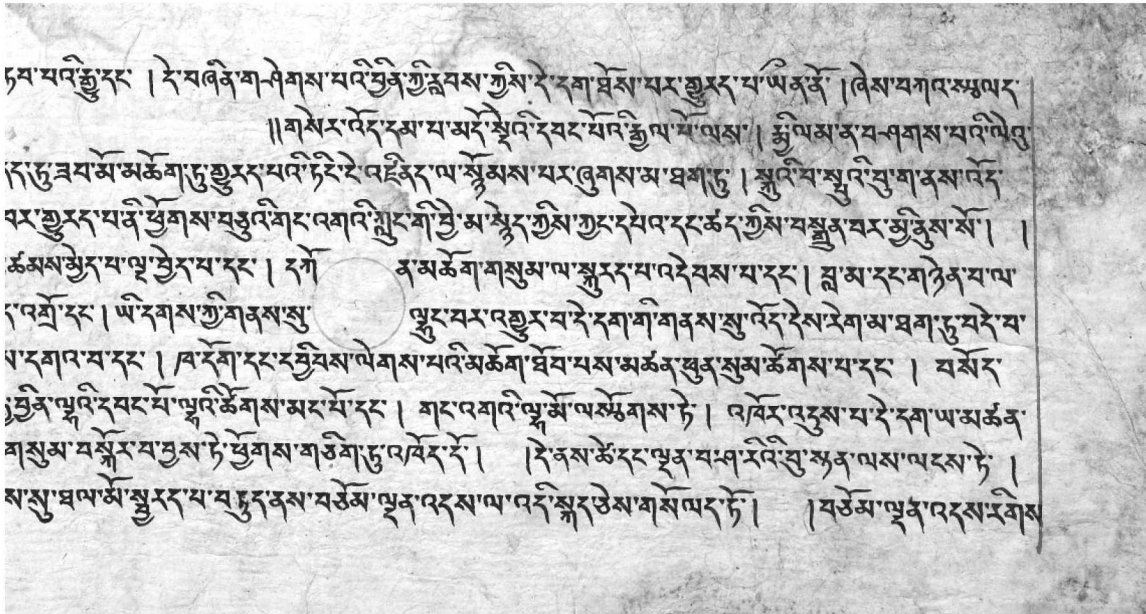 ཏབ་པའི་རྒྱུ་དང་ ། དེ་བཞིན་གཤེགས་པའི་བྱིན་ཀྱི་རླབས་ཀྱིས་དེ་དག་ཐོས་པར་གྱུརད་པ་ཡིན་ནོ་ །ཞེས་བཀའ་སྩལད་
།།གསེར་འོད་དམ་པ་མདོ་སྡེའི་དབང་པོའི་རྒྱལ་པོ་ལས་ ། རྨྱི་ལམ་ན་བཤགས་པའི་ལེའུ་
ད་ཏུ་ཟབ་མོ་མཆོག་ཏུ་གྱུརད་པའི་ཏིང་ངེ་འཛིནད་ལ་སྙོམས་པར་ཞུགས་མ་ཐག་ཏུ ། སྐུའི་བ་སྤུའི་བུ་ག་ནས་འོད་
བར་གྱུརད་པ་ནི་ཕྱོགས་བཅུའི་གང་འགའི་ཀླུང་གི་བྱེ་མ་སྙེད་ཀྱིས་ཀྱང་དཔེའ་དང་ཚད་ཀྱིས་བསྒྲུན་བར་མྱི་ནུས་སོ ། །
མཚམས་མྱེད་པ་ལྔ་བྱེད་པ་དང་ ། དཀོན་མཆོག་གསུམ་ལ་སྐུརད་པ་འདེབས་པ་དང་ ། བླ་མ་དང་གཉེན་བ་ལ་
ད་འགྲོ་དང་ ། ཡི་དགས་ཀྱི་གནས་སུ་ ལྷུང་བར་འགྱུར་བ་དེ་དག་གི་གནས་སུ་འོད་དེས་རེག་མ་ཐག་ཏུ་བདེ་བ་
ས་དགའ་བ་དང་ ། ཁ་དོག་དང་དབྱིབས་ལེགས་པའི་མཆོག་ཐོབ་པས་མཚན་ཕུན་སུམ་ཚོགས་པ་དང་ ། བསོད་
བྱིན་ལྷའི་དབང་པོ་ལྷའི་ཚོགས་མང་པོ་དང་ ། གང་འགའི་ལྷ་མོ་ལསྩོགས་ཏེ ། འཁོར་འདུས་པ་དེ་དག་ཡ་མཚན་
གསུམ་བསྐོར་བ་བྱས་ཏེ་ཕྱོགས་གཅིག་ཏུ་འཁོད་དོ ། །དེ་ནས་ཚེ་དང་ལྡན་བ་ཤ་རིའི་བུ་སྟན་ལས་ལངས་ཏེ་ །
ས་སུ་ཐལ་མོ་སྦྱརད་པ་བཏུད་ནས་བཅོམ་ལྡན་འདས་ལ་འདི་སྐད་ཅེས་གསོལད་ཏོ ། །བཅོམ་ལྡན་འདས་རིགས